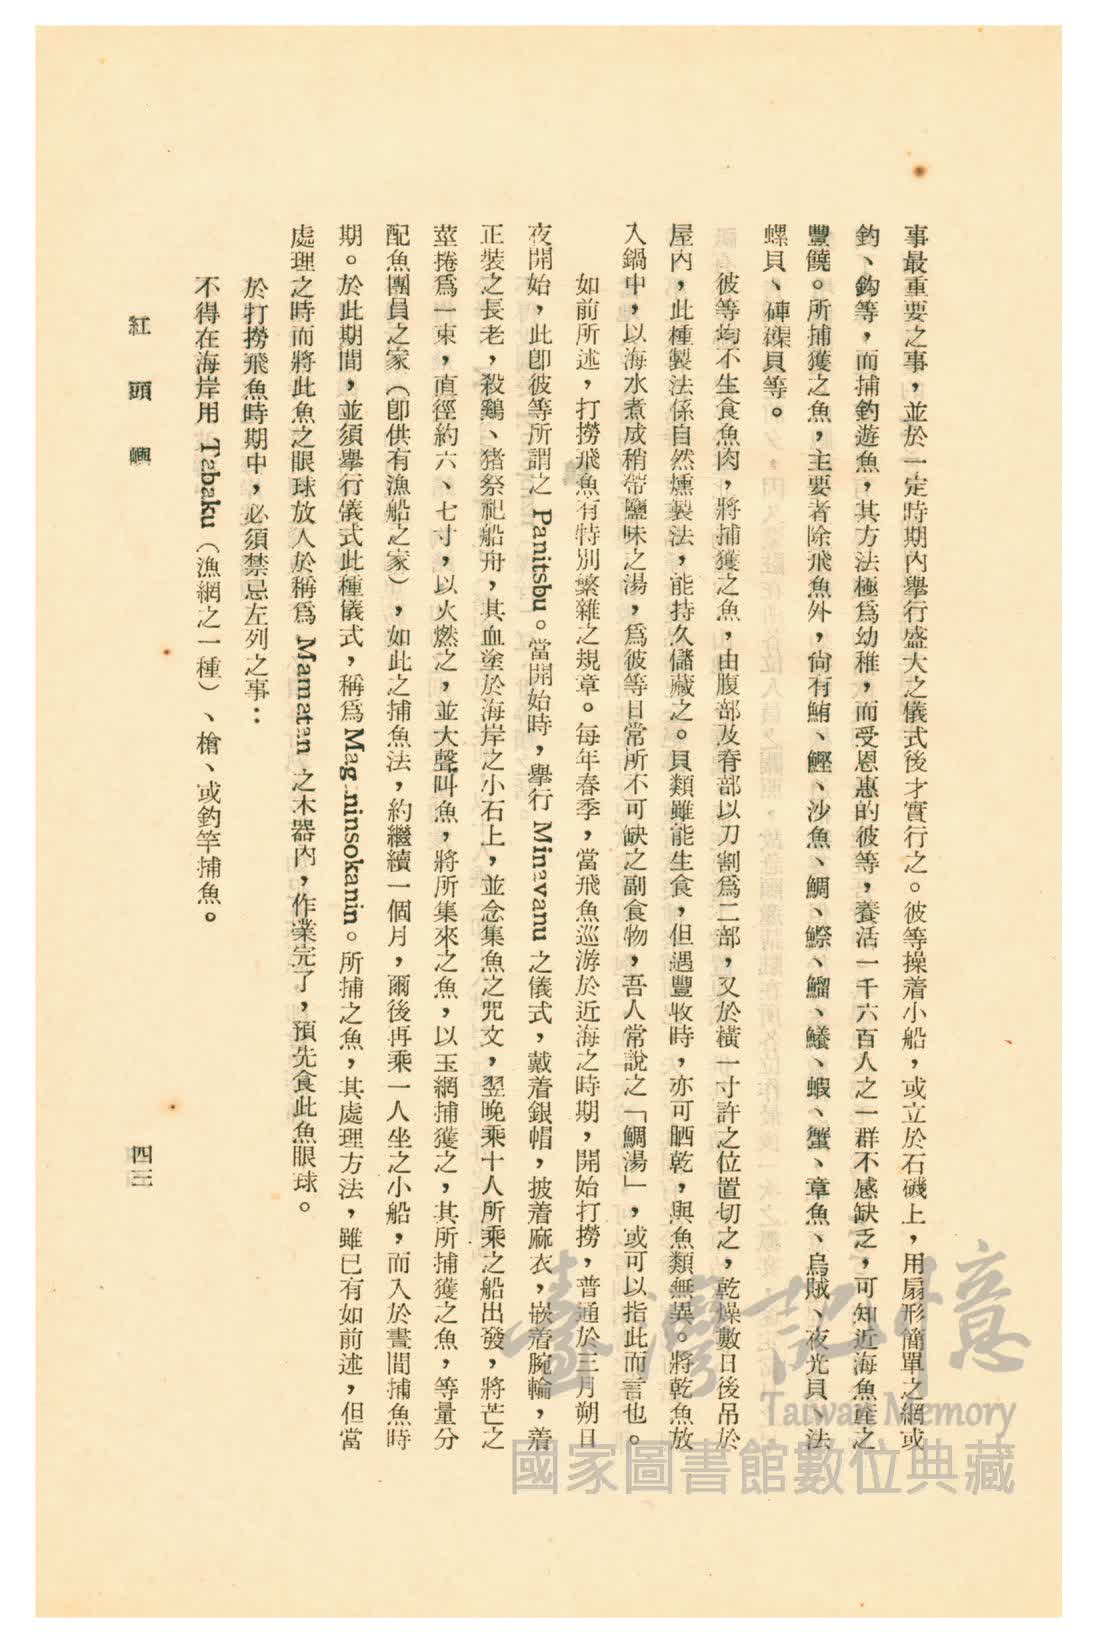 事最重要之事，並於一定時期內舉行盛大之儀式後才實行之。彼等操着小船，或立於石磯上，用扇形簡單之網或
釣、鈎等，而捕釣遊魚，其方法極爲幼稚，而受恩惠的彼等，養活一千六百人之一群不感缺乏，可知近海魚產之
豐饒。所捕獲之魚，主要者除飛魚外，尙有鮪、鰹、沙魚、鯛、鰶、鰡、鱶、蝦、蟹、章魚、烏賊、夜光貝、法
螺貝、硨磲貝等。
彼等均不生食魚肉，將捕獲之魚，由腹部及脊部以刀割爲二部，又於橫一寸許之位置切之，乾燥數日後吊於
屋內，此種製法係自然燻製法，能持久儲藏之。貝類雖能生食，但遇豐收時，亦可晒乾，與魚類無異。將乾魚放
入鍋中，以海水煮成稍帶鹽味之湯，爲彼等日常所不可缺之副食物，吾人常說之「鯛湯」，或可以指此而言也。
如前所述，打撈飛魚有特別繁雜之規章。每年春季，當飛魚巡游於近海之時期，開始打撈，普通於三月朔日
夜開始，此卽彼等所謂之 Panitsbu。當開始時，舉行 Minavanu 之儀式，戴着銀帽，披着麻衣，嵌着腕輪，着
正裝之長老，殺鷄、猪祭祀船舟，其血塗於海岸之小石上，並念集魚之咒文，翌晚乘十人所乘之船出發，將芒之
莖捲爲一束，直徑約六、七寸，以火燃之，並大聲叫魚，將所集來之魚，以玉網捕獲之，其所捕獲之魚，等量分
配魚團員之家（卽供有漁船之家），如此之捕魚法，約繼續一個月，爾後再乘一人坐之小船，而入於晝間捕魚時
期。於此期間，並須舉行儀式此種儀式，稱爲Mag-ninsokanin。所捕之魚，其處理方法，雖已有如前述，但當
處理之時而將此魚之眼球放入於稱爲 Mamatan 之木器內，作業完了，預先食此魚眼球。
於打撈飛魚時期中，必須禁忌左列之事：
不得在海岸用 Tabaku（漁網之一種）、槍、或釣竿捕魚。
紅頭嶼
四三
臺灣記憶
Taiwan Memory
國家圖書館數位典藏